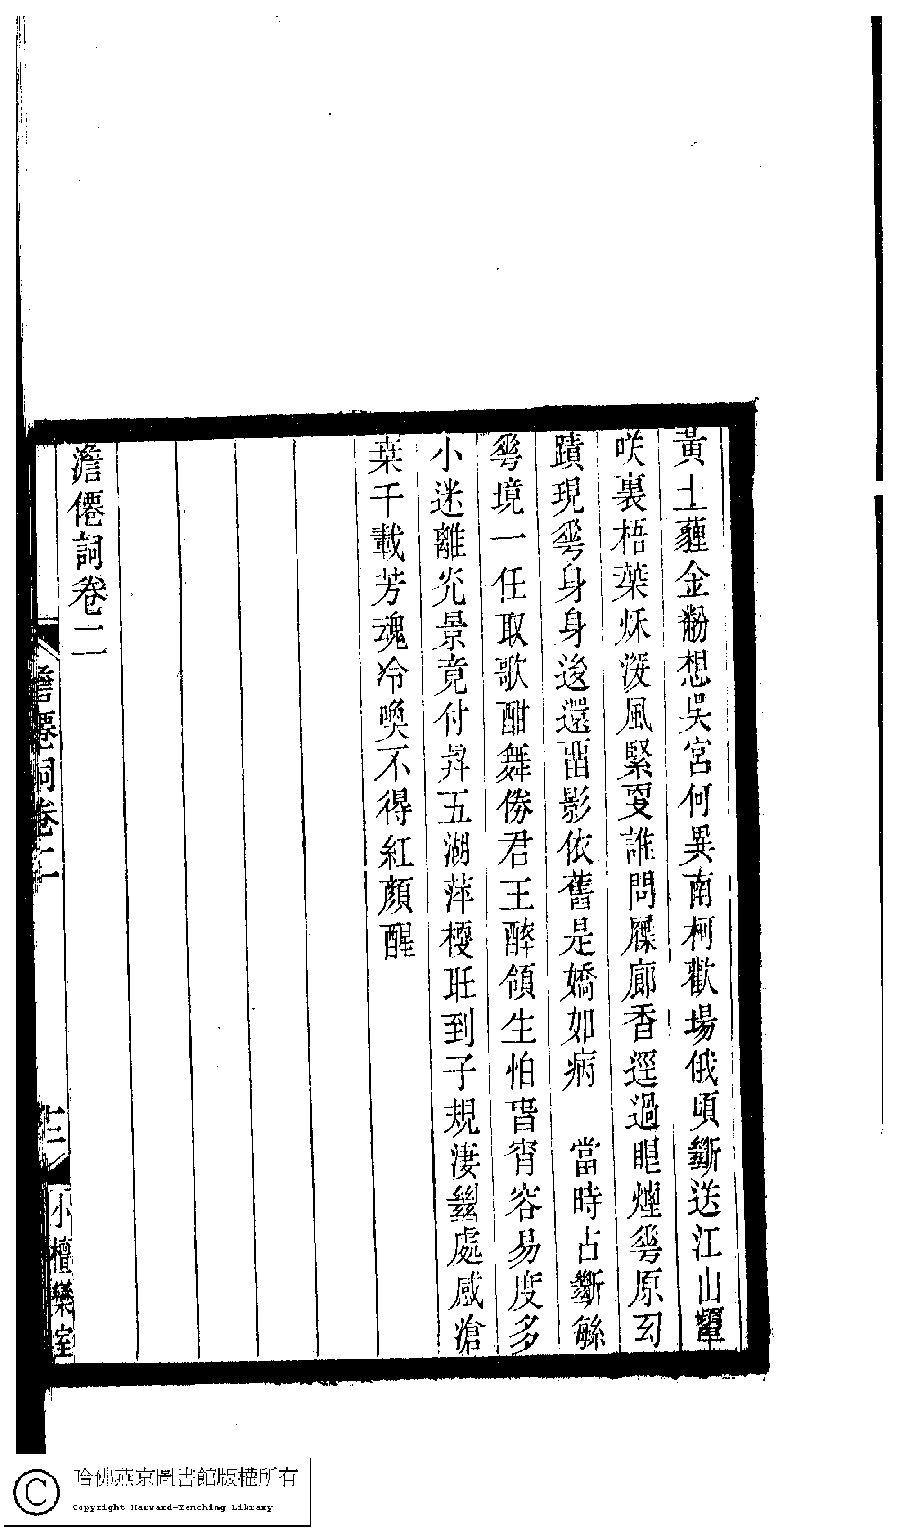 黃土薶金黺想吳宮何異南柯歡場俄頃斷送江山顰
咲裏梧葉秌深風緊叓誰問屧廊香逕過眼煙蕐原幻
蹟現蕐身身後還畱影依舊是嬌如病　當時占斷緐
蕐境一任取歌酣舞傍君王醉領生怕春宵容易度多
小迷離光景竟付舁五湖萍梗到子規淒絕處感滄
桒千載芳魂冷喚不得紅顏醒
澹僊詞卷二
澹僊詞卷二
三
小檀欒室
哈佛燕京圖書館版權所有
Copyright Harvard-Yenching Library